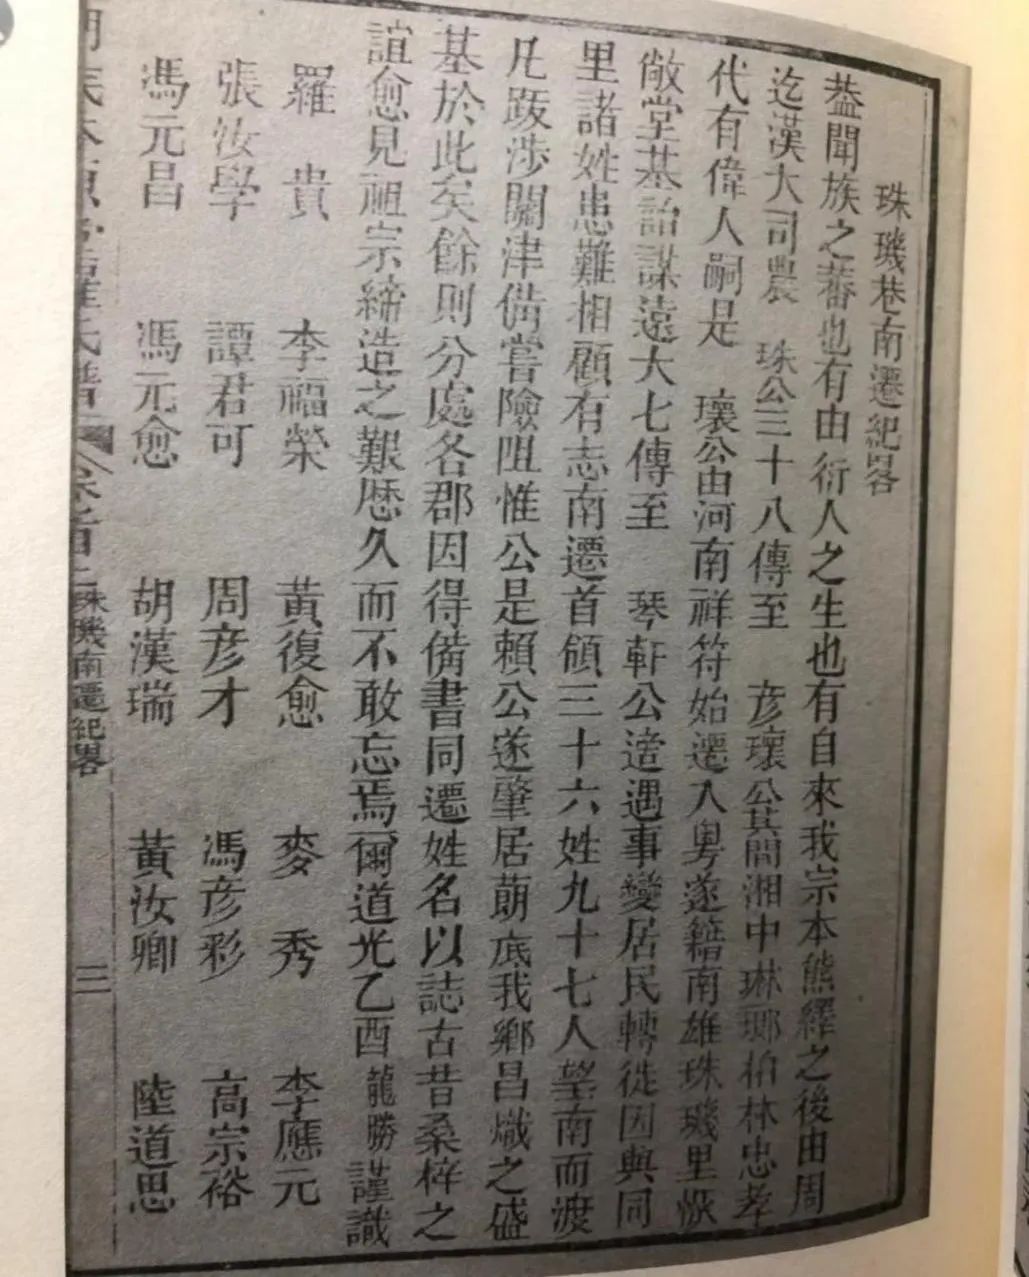 珠璣巷南遷紀畧
葢聞族之蕃也有由衍人之生也有自來我宗本熊繹之後由周
迄漢大司農　珠公三十八傳至　彥瓌公其間湘中琳瑯柏林忠孝
代有偉人嗣是　瓌公由河南祥符始遷入粤遂籍南雄珠璣里恢
敞堂基詒謀遠大七傳至　琴軒公適遇事變居民轉徙因與同
里諸姓患難相顧有志南遷首領三十六姓九十七人望南而渡
凡跋涉關津備嘗險阻惟公是賴公遂肇居蓢底我鄉昌熾之盛
基於此矣餘則分處各郡因得備書同遷姓名以誌古昔桑梓之
誼愈見祖宗締造之艱歷久而不敢忘焉爾道光乙酉龍勝謹識
羅　貴　李福榮　黃復愈　麥　秀　李應元
張汝學　譚君可　周彥才　馮彥彩　高宗裕
馮元昌　馮元愈　胡漢瑞　黃汝卿　陸道思
珠璣南遷紀畧　三